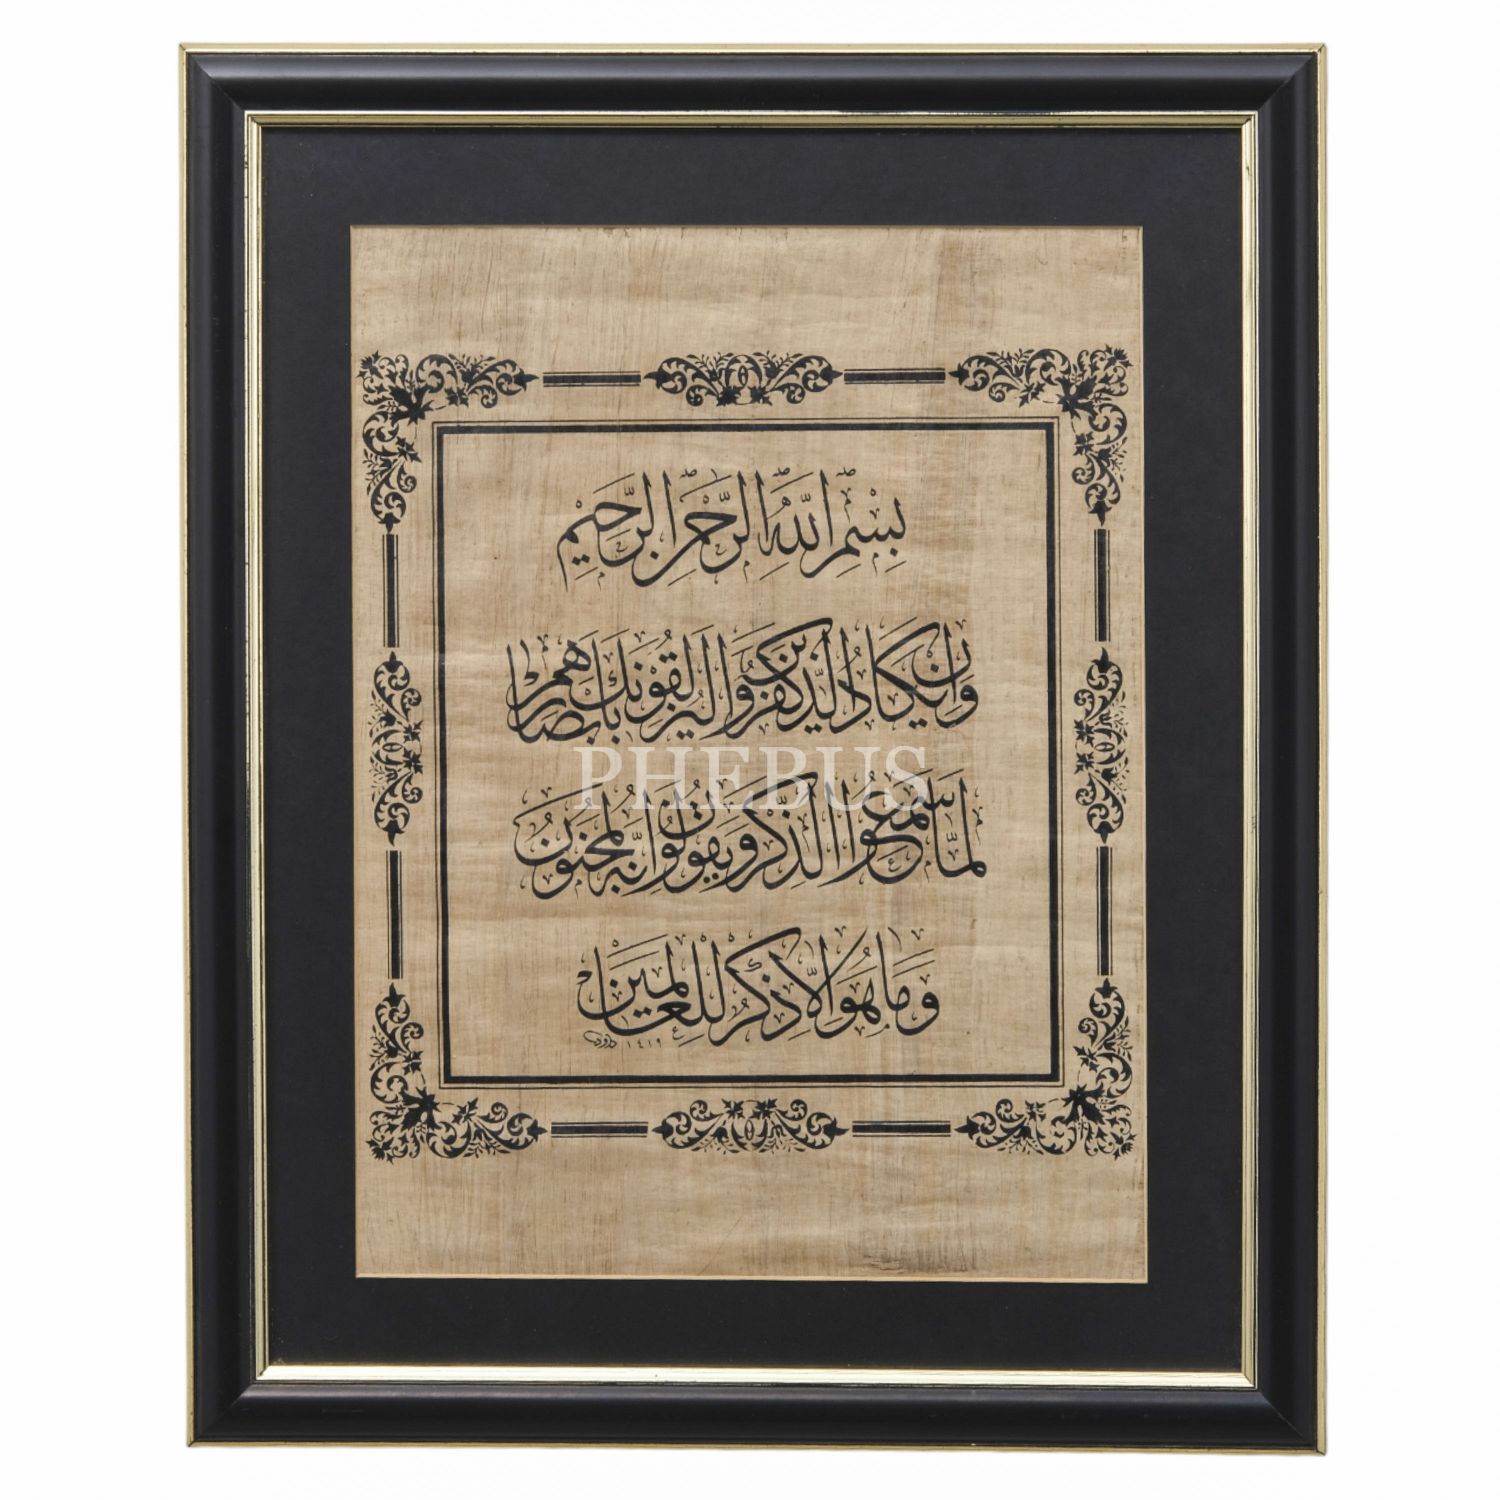 بِسْمِ اللّٰهِ الرَّحْمٰنِ الرَّحِيمِ
وَاِنْ يَكَادُ الَّذِينَ كَفَرُوا لَيُزْلِقُونَكَ بِاَبْصَارِهِمْ
PHEBUS
لَمَّا سَمِعُوا الذِّكْرَ وَيَقُولُونَ اِنَّهُ لَمَجْنُونٌ
وَمَا هُوَ اِلَّا ذِكْرٌ لِلْعَالَمِينَ
١٤١٩